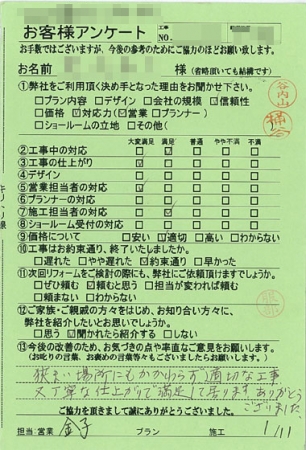 お客様アンケート
工事NO.
お手数ではございますが、今後の参考のためにご協力のほどお願い致します。
お名前 様 (省略頂いても結構です)
①弊社をご利用頂く決め手となった理由をお聞かせ下さい。
□プラン内容 □デザイン □会社の規模 ☑信頼性
□価格 ☑対応力(☑営業 □プランナー)
□ショールームの立地 □その他( )
大変満足 満足 普通 やや不満 不満
②工事中の対応 □ ☑ □ □ □
③工事の仕上がり ☑ □ □ □ □
④デザイン □ □ □ □ □
⑤営業担当者の対応 ☑ □ □ □ □
⑥プランナーの対応 □ □ □ □ □
⑦施工担当者の対応 □ ☑ □ □ □
⑧ショールーム受付の対応 □ □ □ □ □
⑨価格について □安い ☑適切 □高い □わからない
⑩工事はお約束通り、終了いたしましたか。
□遅れた □やや遅れた ☑約束通り □早かった
⑪次回リフォームをご検討の際にも、弊社にご依頼頂けますでしょうか。
□ぜひ頼む ☑頼むと思う □担当が変われば頼む
□頼まない □わからない
⑫ご家族・ご親戚の方々をはじめ、お知り合い方々に、
弊社を紹介したいとお思いでしょうか。
□思う ☑聞かれたら紹介する □しない
⑬今後の改善のため、お気づきの点や率直なご意見をお願いします。
(お叱りの言葉、お褒めの言葉等々もございましたらお願いします。)
狭い場所にもかかわらず適切な工事
又丁寧な仕上がりで満足して居ります ありがとう
ございました。
ご協力を頂きまして誠にありがとうございました。
担当:営業 金子 プラン 施工 1/11